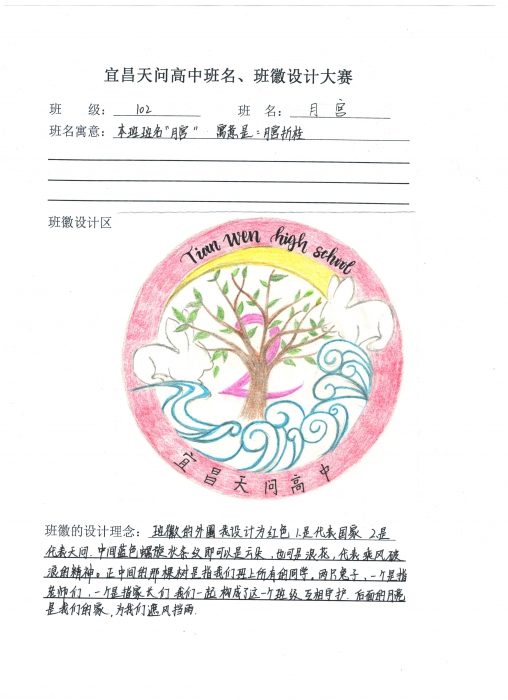 宜昌天问高中班名、班徽设计大赛
班 级: 102 班 名: 月宫
班名寓意: 本班班名"月宫" 寓意是:月宫折桂
班徽设计区
Tian wen high school
2
宜昌天问高中
班徽的设计理念: 班徽的外圈我设计为红色 1.是代表国家 2.是
代表天问.中间蓝色螺旋状条纹即可以是云朵,也可是浪花,代表乘风破
浪的精神。正中间的那棵树是指我们班上所有的同学。两只兔子,一个是指
老师们,一个是指家长们 我们一起构成了这一个班级 互相守护.后面的月亮
是我们的家,为我们遮风挡雨.